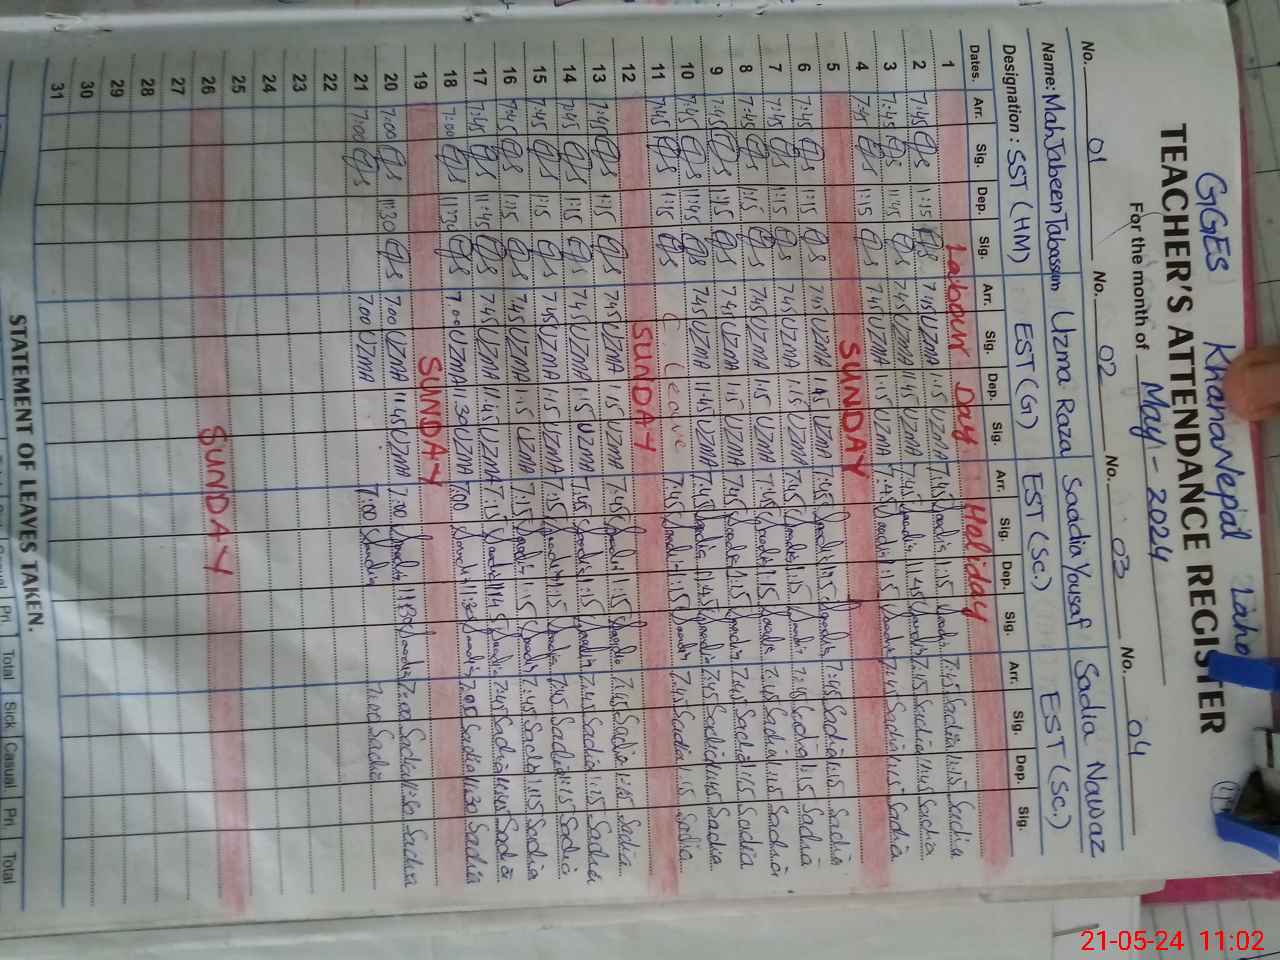 GGES KhanaNepal Laho
TEACHER'S ATTENDANCE REGISTER
For the month of May - 2024
No. 01 No. 02 No. 03 No. 04
Name: MahJabeenTabassum Uzma Raza Saadia Yousaf Sadia Nawaz
Designation : SST (HM) EST (G) EST (Sc.) EST (Sc.)
Dates. Arr. Sig. Dep. Sig. Arr. Sig. Dep. Sig. Arr. Sig. Dep. Sig. Arr. Sig. Dep. Sig.
1 Labour Day Holiday
2 7:45 1:15 7:45 UZMA 1:15 UZMA 7:45 Saadia 1:15 Saadia 7:45 Sadia 1:15 Sadia
3 7:45 11:45 7:45 UZMA 11:45 UZMA 7:45 Saadia 11:45 Saadia 7:45 Sadia 11:45 Sadia
4 7:45 1:15 7:45 UZMA 1:15 UZMA 7:45 Saadia 1:15 Saadia 7:45 Sadia 1:15 Sadia
5 SUNDAY
6 7:45 1:15 7:45 UZMA 1:15 UZMA 7:45 Saadia 1:15 Saadia 7:45 Sadia 1:15 Sadia
7 7:45 1:15 7:45 UZMA 1:15 UZMA 7:45 Saadia 1:15 Saadia 7:45 Sadia 1:15 Sadia
8 7:45 1:15 7:45 UZMA 1:15 UZMA 7:45 Saadia 1:15 Saadia 7:45 Sadia 1:15 Sadia
9 7:45 1:15 7:45 UZMA 1:15 UZMA 7:45 Saadia 1:15 Saadia 7:45 Sadia 1:15 Sadia
10 7:45 11:45 7:45 UZMA 11:45 UZMA 7:45 Saadia 11:45 Saadia 7:45 Sadia 11:45 Sadia
11 7:45 1:15 C Leave 7:45 Saadia 1:15 Saadia 7:45 Sadia 1:15 Sadia
12 SUNDAY
13 7:45 1:15 7:45 UZMA 1:15 UZMA 7:45 Saadia 1:15 Saadia 7:45 Sadia 1:15 Sadia
14 7:45 1:15 7:45 UZMA 1:15 UZMA 7:45 Saadia 1:15 Saadia 7:45 Sadia 1:15 Sadia
15 7:45 1:15 7:45 UZMA 1:15 UZMA 7:15 Saadia 1:15 Saadia 7:45 Sadia 1:15 Sadia
16 7:45 1:15 7:45 UZMA 1:15 UZMA 7:15 Saadia 1:15 Saadia 7:45 Sadia 1:15 Sadia
17 7:45 11:45 7:45 UZMA 11:45 UZMA 7:15 Saadia Saadia 7:45 Sadia 11:45 Sadia
18 7:00 11:30 7:00 UZMA 11:30 UZMA 7:00 Saadia 11:30 Saadia 7:00 Sadia 11:30 Sadia
19 SUNDAY
20 7:00 11:30 7:00 UZMA 11:45 UZMA 7:00 Saadia 11:30 Saadia 7:00 Sadia 11:30 Sadia
21 7:00 7:00 UZMA 7:00 Saadia 7:00 Sadia
22
23
24
25
26 SUNDAY
27
28
29
30
31
STATEMENT OF LEAVES TAKEN.
Pri. Total Sick Casual Pri. Total
21-05-24 11:02